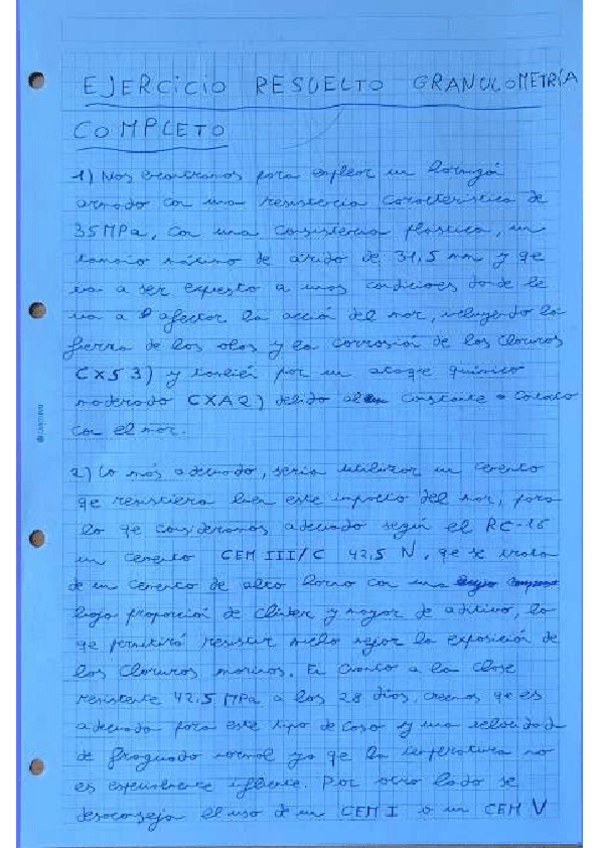 EJERCICIO RESUELTO GRANULOMETRÍA
COMPLETO
1) Nos encontramos para emplear un hormigón
armado con una resistencia característica de
35 MPa, con una consistencia plástica, un
tamaño máximo de árido de 31,5 mm y qe
va a ser expuesto a unas condiciones donde le
va a afectar la acción del mar, incluyendo la
fuerza de las olas y la corrosión de los cloruros
(XS3) y también por un ataque químico
moderado (XA2) debido al constante contacto
con el mar.
2) Lo más adecuado, sería utilizar un cemento
qe resistiera bien este impacto del mar, para
lo qe consideramos adecuado según el RC-16
un cemento CEM III/C 42,5 N, qe se trata
de un cemento de alto horno con una
baja proporción de clinker y mayor de aditivo, lo
qe permitirá resistir mucho mejor la exposición de
los cloruros marinos. En cuanto a la clase
resistente 42,5 MPa a los 28 días, creemos qe es
adecuado para este tipo de caso y una velocidad
de fraguado normal ya qe la temperatura no
es influente. Por otro lado se
desaconseja el uso de un CEM I o un CEM V